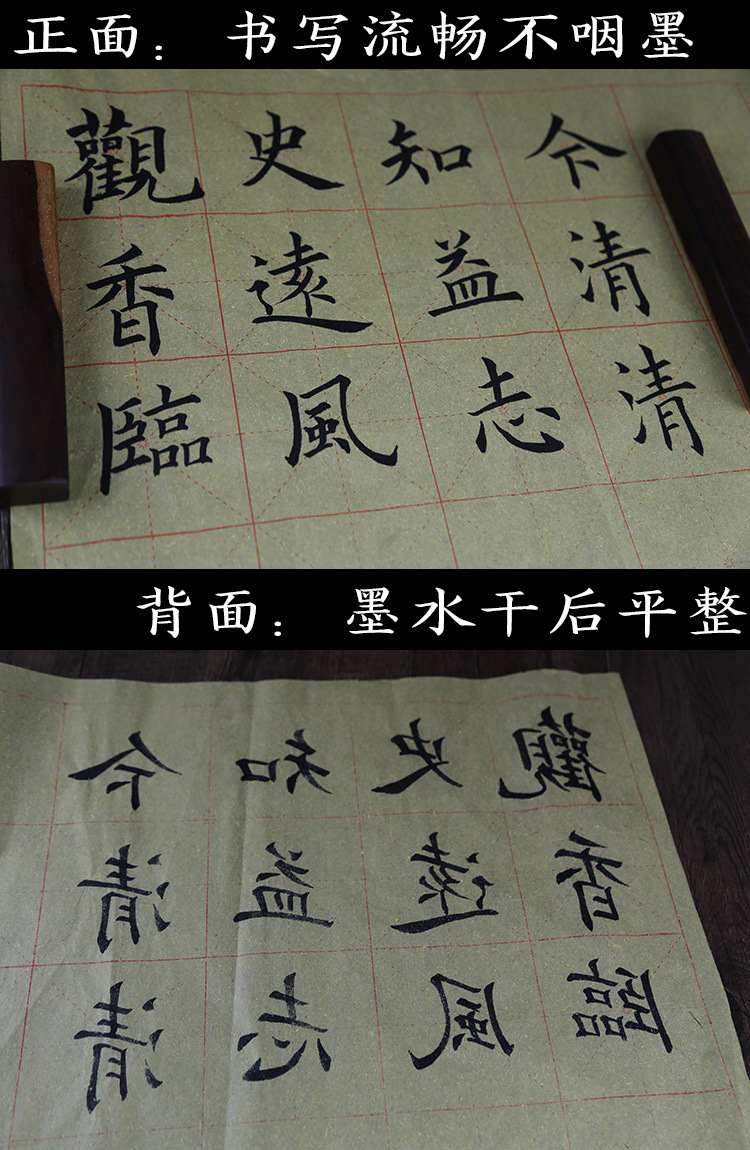 正面：书写流畅不咽墨
觀史知今
香遠益清
臨風志清
背面：墨水干后平整
觀史知今
香遠益清
臨風志清